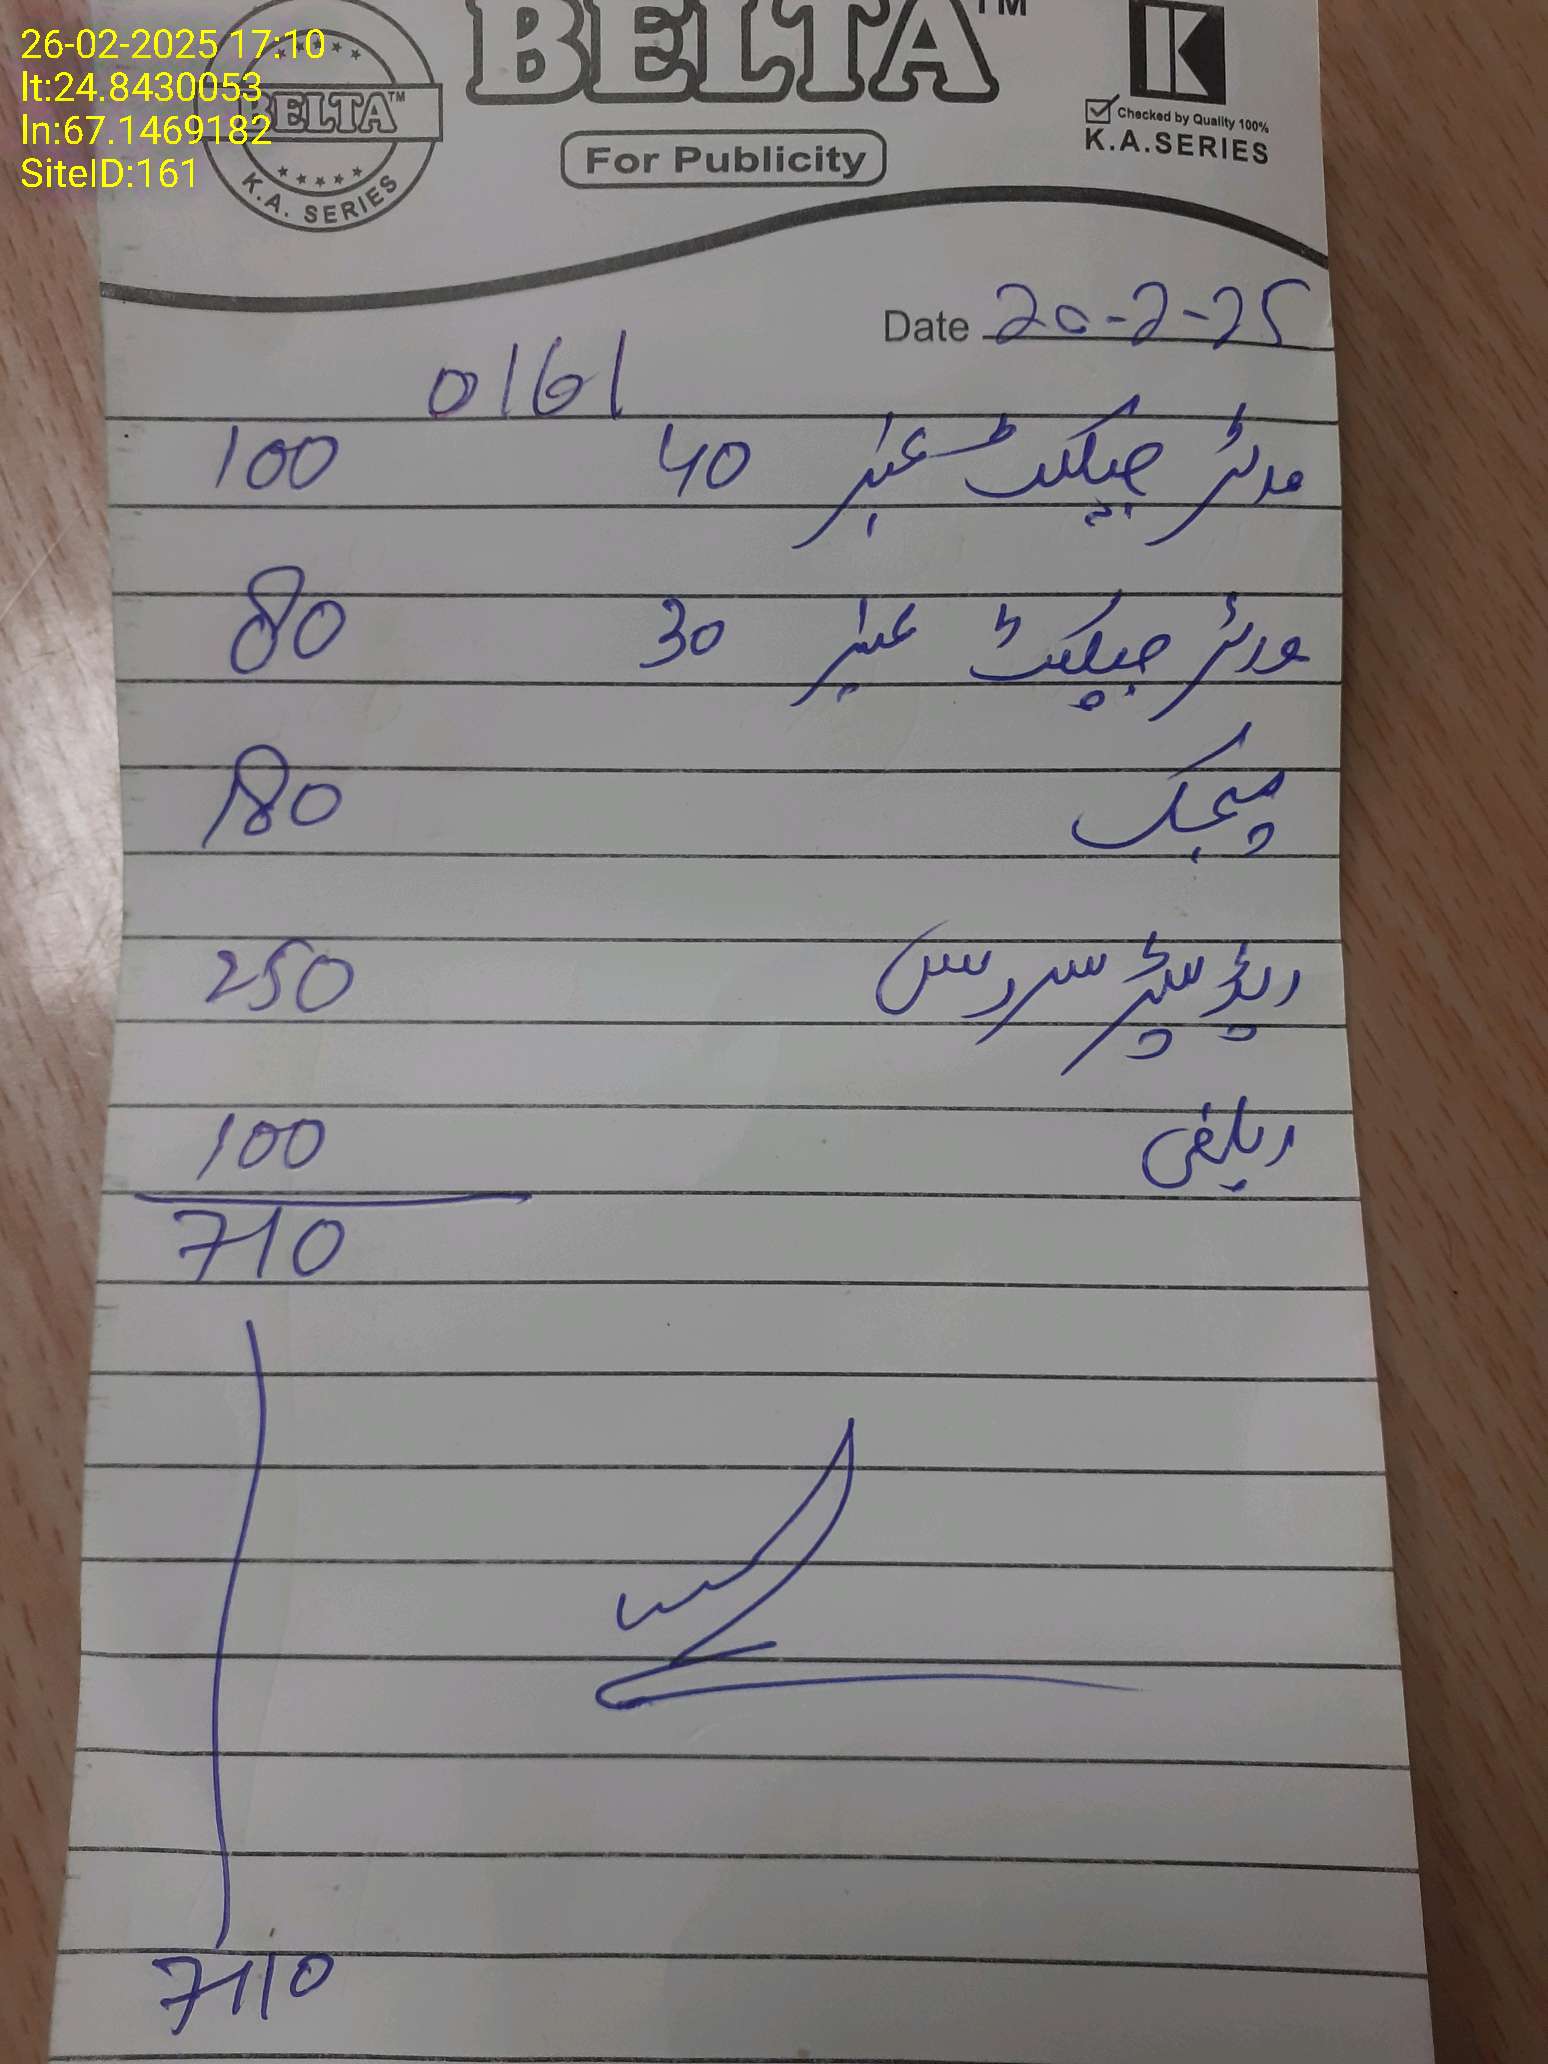 26-02-2025 17:10
lt:24.8430053
ln:67.1469182
SiteID:161
BELTA™
BELTA™
K.A. SERIES
For Publicity
K
Checked by Quality 100%
K.A.SERIES
Date 20-2-25
0161
موٹر جیکٹ نمبر 40 100
موٹر جیکٹ نمبر 30 80
180
ریڈ سٹر سروس 250
100
710
710